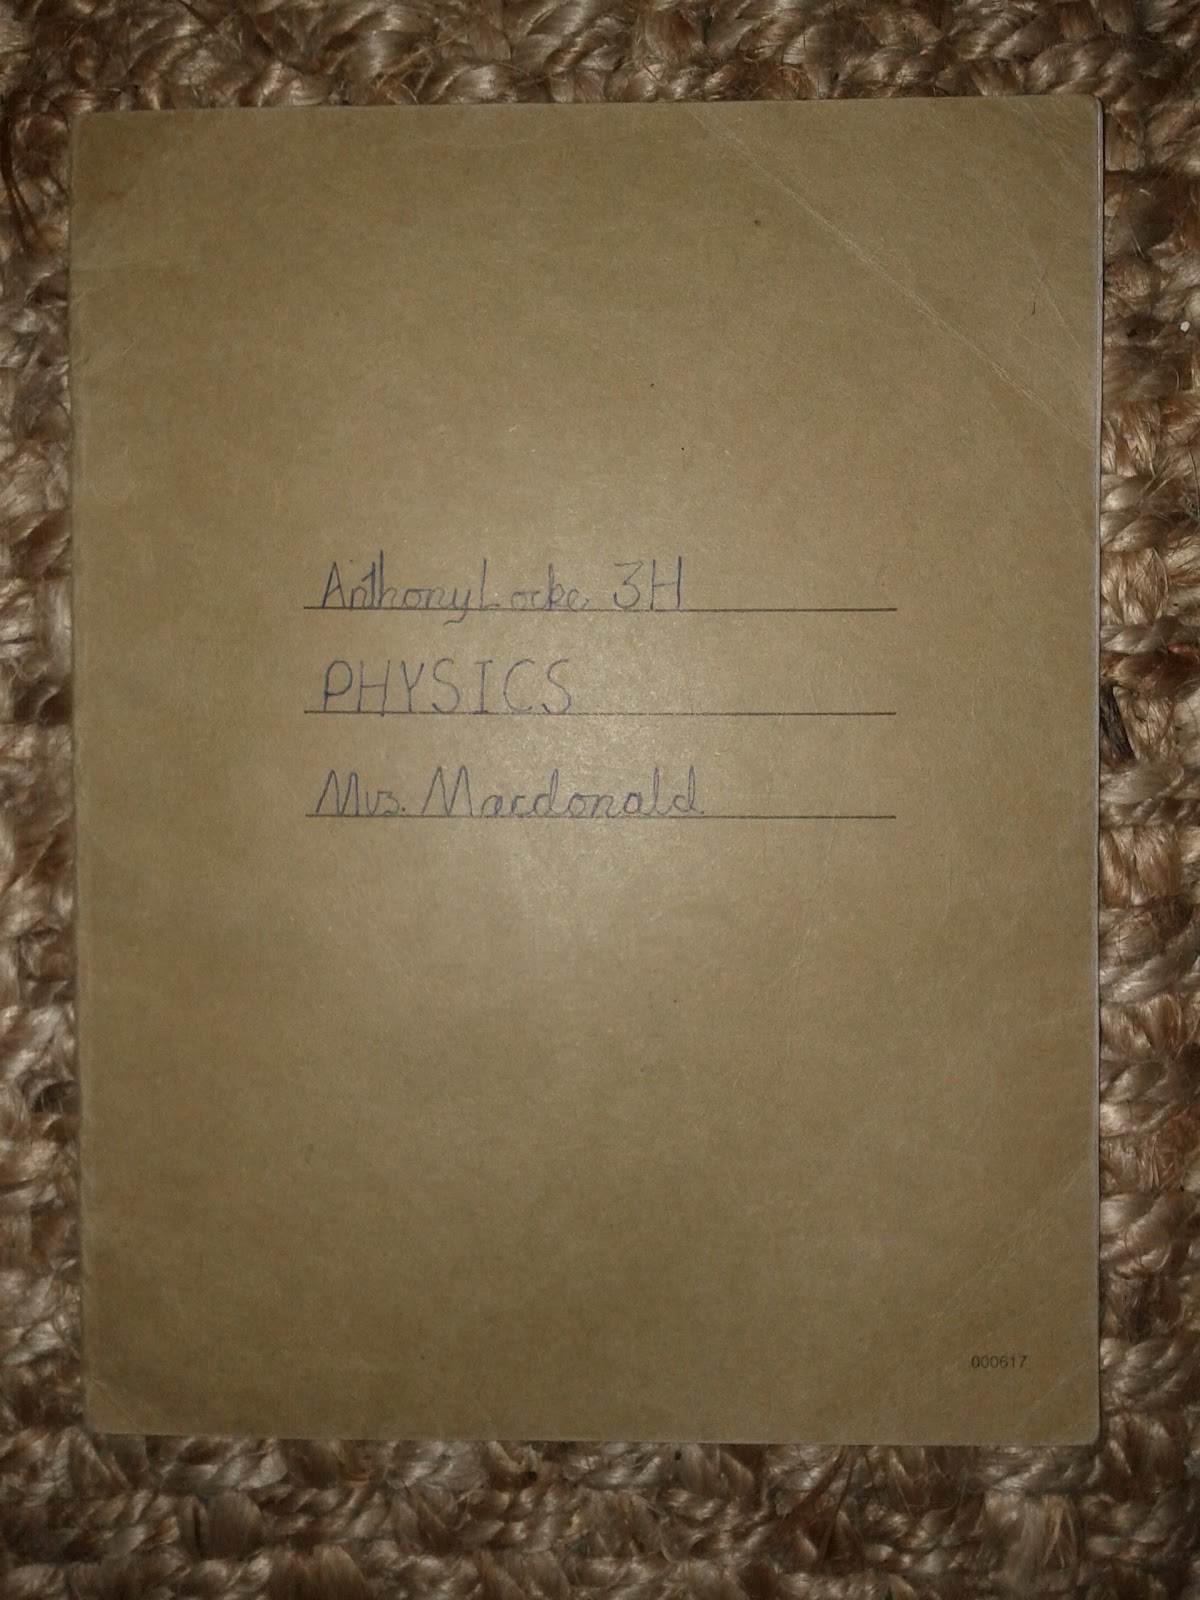 Anthony Locke 3H
PHYSICS
Mrs. Macdonald
000617